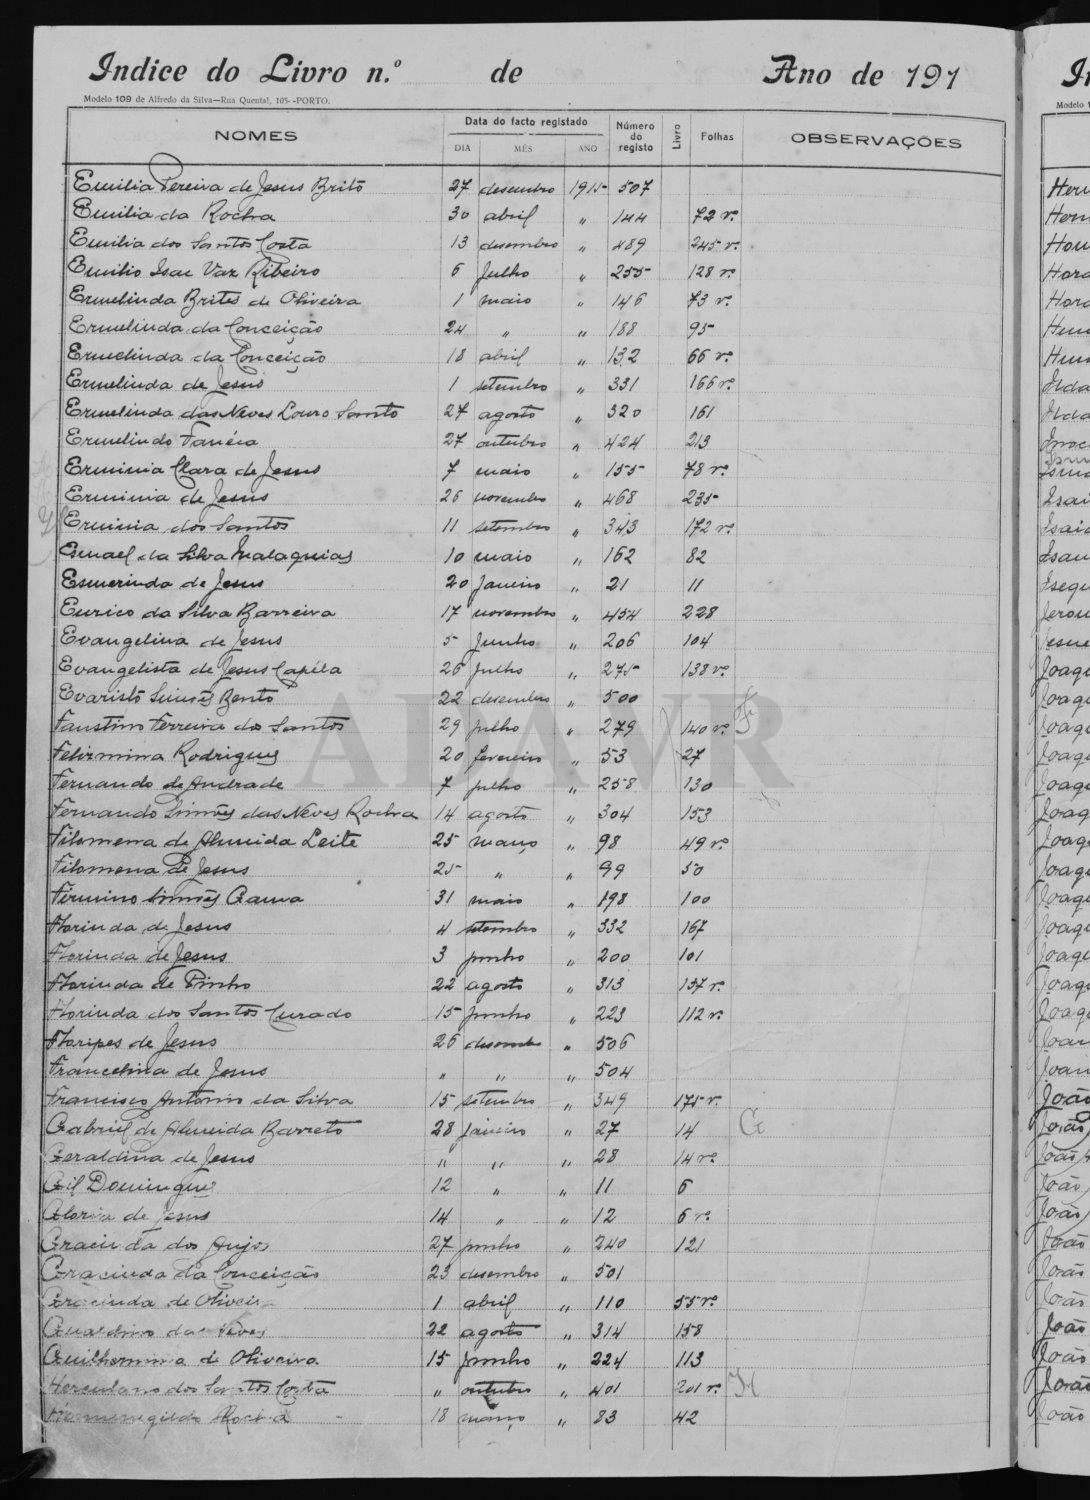 Indice do Livro n.º de Ano de 191
Modelo 109 de Alfredo da Silva—Rua Quental, 105--PORTO.
NOMES Data do facto registado Número do registo Livro Folhas OBSERVAÇÕES
DIA MÊS ANO
Emilia Pereira de Jesus Brito 27 desembro 1915 507
Emilia da Rocha 30 abril " 144 72 vº
Emilia dos Santos Costa 13 desembro " 489 245 vº
Emilio Isac Vaz Ribeiro 6 Julho " 255 128 vº
Ermelinda Brites de Oliveira 1 maio " 146 73 vº
Ermelinda da Conceição 24 " " 188 95
Ermelinda da Conceição 18 abril " 132 66 vº
Ermelinda de Jesus 1 setembro " 331 166 vº
Ermelinda das Neves Louro Santo 27 agosto " 320 161
Ermelindo 27 outubro " 424 213
Erminia Clara de Jesus 7 maio " 155 78 vº
Erminia de Jesus 26 novembro " 468 235
Erminia dos Santos 11 setembro " 343 172 vº
Esmael da Silva Malaquias 10 maio " 162 82
Esmerinda de Jesus 20 Janeiro " 21 11
Eurico da Silva Barreira 17 novembro " 454 228
Evangelina de Jesus 5 Junho " 206 104
Evangelista de Jesus Capéla 26 julho " 275 138 vº
Evaristo Simões Bento 22 desembro " 500
Faustino Ferreira dos Santos 29 julho " 279 140 vº F
Felismina Rodrigues 20 fevereiro " 53 27
Fernando de Andrade 7 julho " 258 130
Fernando Simões das Neves Rocha 14 agosto " 304 153
Filomena de Almeida Leite 25 março " 98 49 vº
Filomena de Jesus 25 " " 99 50
Firmino Simões Gama 31 maio " 198 100
Florinda de Jesus 4 setembro " 332 167
Florinda de Jesus 3 junho " 200 101
Florinda de Pinho 22 agosto " 313 157 vº
Florinda dos Santos Curado 15 junho " 223 112 vº
Floripes de Jesus 26 desembro " 506
Francelina de Jesus " " " 504
Francisco Antonio da Silva 15 setembro " 349 175 vº
Gabriel de Almeida Barreto 28 janeiro " 27 14 G
Geraldina de Jesus " " " 28 14 vº
Gil Domingues 12 " " 11 6
Gloria de Jesus 14 " " 12 6 vº
Gracinda dos Anjos 27 junho " 240 121
Gracinda da Conceição 23 desembro " 501
Gracinda de Oliveira 1 abril " 110 55 vº
Gualdino das Neves 22 agosto " 314 158
Guilhermina de Oliveira 15 junho " 224 113
Herculano dos Santos Costa " outubro " 401 201 vº H
Hermenegildo Rocha 18 março " 83 42
ADAVR